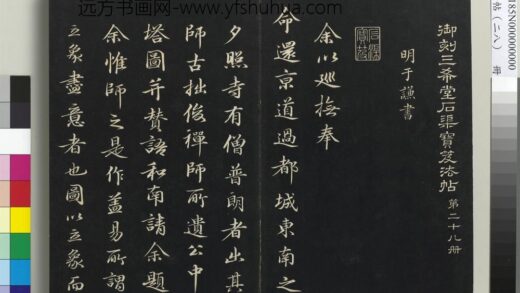 远方书画网-www.yfshuhua.com
御刻三希堂石渠寶笈法帖 第二十八册
明于謙書
余以巡撫奉
命還京道過都城東南之
夕照寺有僧普朗者出其
師古拙俊禪師所遺公中
塔圖并賛語和南請余題
余惟師之是作盖易所謂
立象盡意者也圖以立象而